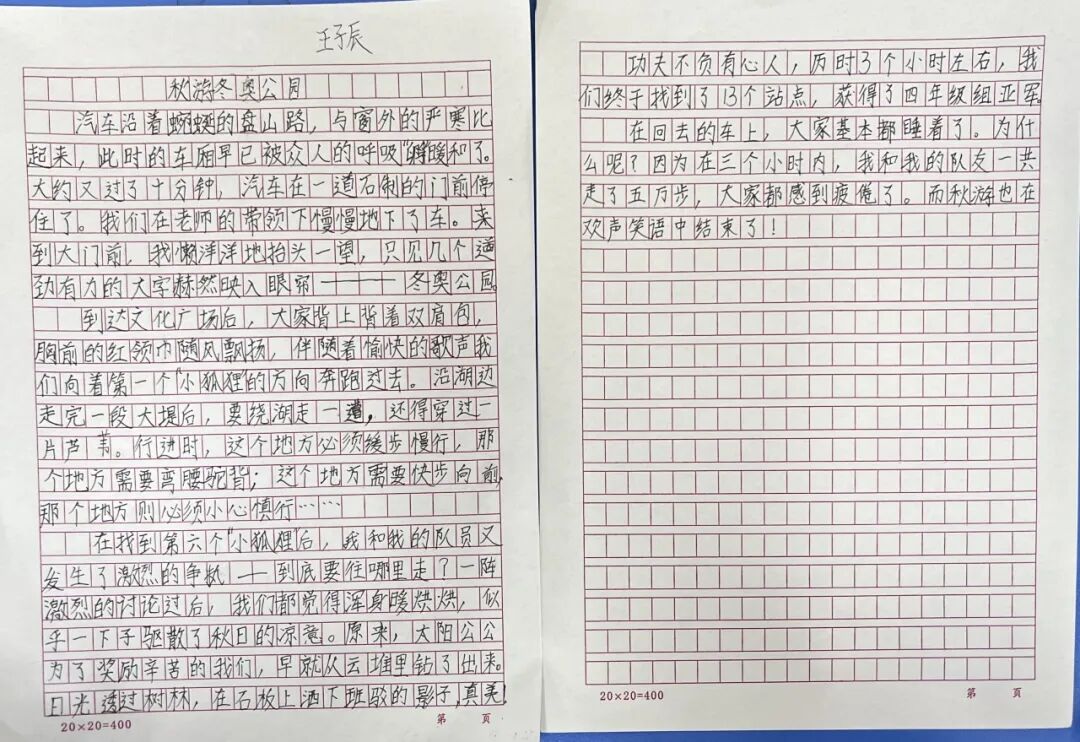 王子辰
秋游冬奥公园
汽车沿着蜿蜒的盘山路，与窗外的严寒比
起来，此时的车厢早已被众人的呼吸“哺”暖和了。
大约又过了十分钟，汽车在一道石制的门前停
住了。我们在老师的带领下慢慢地下了车。来
到大门前，我懒洋洋地抬头一望，只见几个遒
劲有力的大字赫然映入眼帘———冬奥公园。
到达文化广场后，大家背上背着双肩包，
胸前的红领巾随风飘扬，伴随着愉快的歌声我
们向着第一个“小狐狸”的方向奔跑过去。沿湖边
走完一段大堤后，要绕湖走一遭，还得穿过一
片芦苇。行进时，这个地方必须缓步慢行，那
个地方需要弯腰驼背；这个地方需要快步向前，
那个地方则必须小心慎行……
在找到第六个“小狐狸”后，我和我的队员又
发生了激烈的争执——到底要往哪里走？一阵
激烈的讨论过后，我们都觉得浑身暖烘烘，似
乎一下子驱散了秋日的凉意。原来，太阳公公
为了奖励辛苦的我们，早就从云堆里钻了出来。
日光透过树林，在石板上洒下斑驳的影子，真美
20×20=400
第 页
功夫不负有心人，历时3个小时左右，我
们终于找到了13个站点，获得了四年级组亚军。
在回去的车上，大家基本都睡着了。为什
么呢？因为在三个小时内，我和我的队友一共
走了五万步，大家都感到疲倦了。而秋游也在
欢声笑语中结束了！
20×20=400
第 页